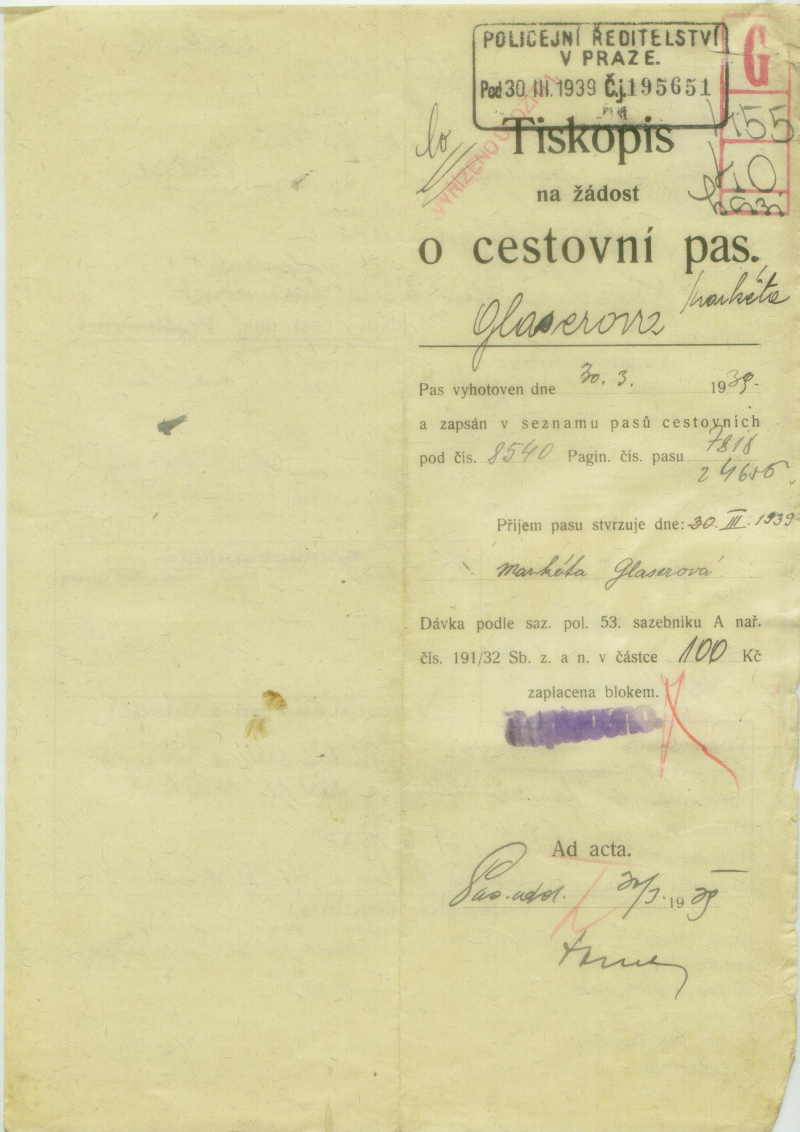 POLICEJNÍ ŘEDITELSTVÍ
V PRAZE.
Pod 30.III.1939 Č.j. 195651
G
455
40
Tiskopis
na žádost
o cestovní pas.
Glaserova Markéta
Pas vyhotoven dne 30. 3. 1939.
a zapsán v seznamu pasů cestovních
pod čís. 8540 Pagin. čís. pasu 7818
Příjem pasu stvrzuje dne: 30. III. 1939
Markéta Glaserová
Dávka podle saz. pol. 53. sazebníku A nař.
čís. 191/32 Sb. z. a n. v částce 100 Kč
zaplacena blokem.
Ad acta.
Pas. odd. 30/3. 1939